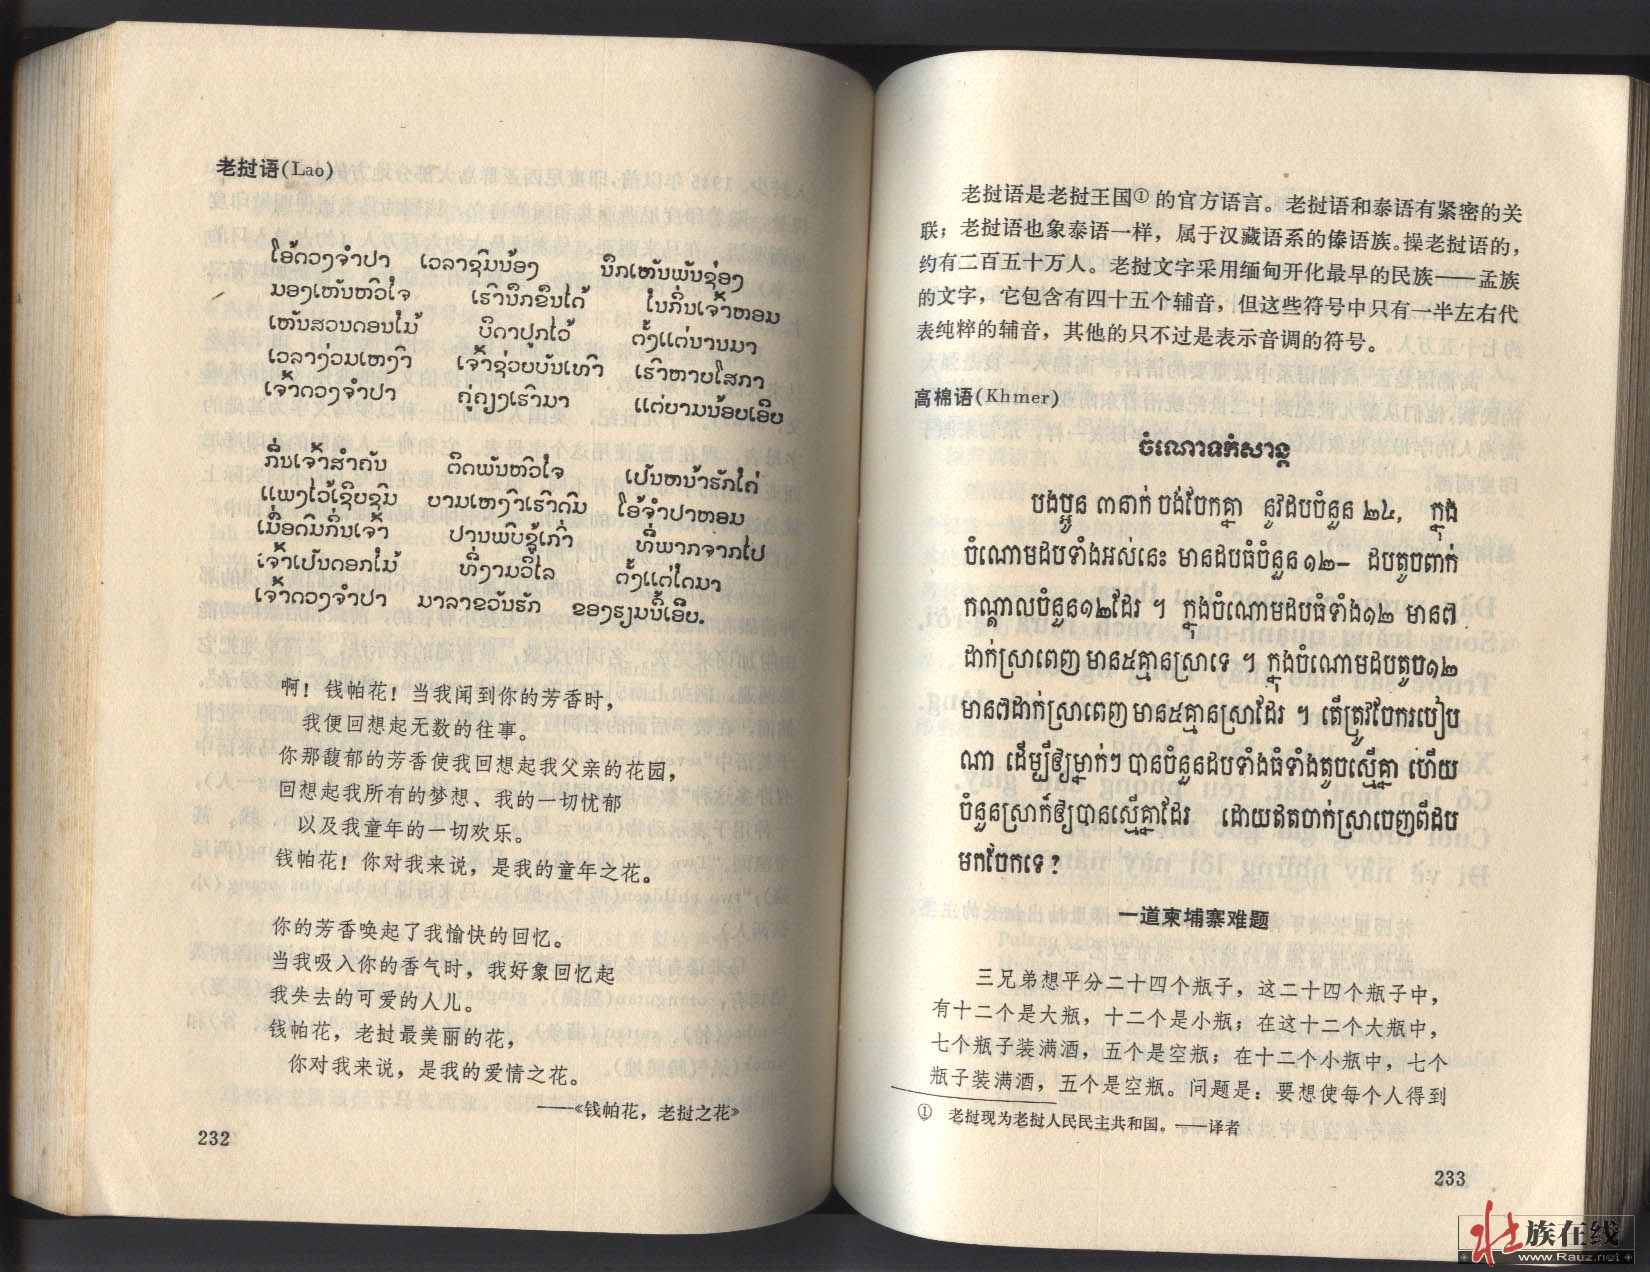 老挝语(Lao)
ໂອ້ດວງຈຳປາ ເວລາຊົມນ້ອງ ນຶກເຫັນພັນຊ່ອງ
ມອງເຫັນຫົວໃຈ ເຮົານຶກຂຶ້ນໄດ້ ໃນກິ່ນເຈົ້າຫອມ
ເຫັນສວນດອນໄມ້ ບິດາປູກໄວ້ ຕັ້ງແຕ່ນານມາ
ເວລາງ່ວມເຫງົາ ເຈົ້າຊ່ວຍບັນເທົາ ເຮົາຫາຍໂສກາ
ເຈົ້າດວງຈຳປາ ຄູ່ຄຽງເຮົາມາ ແຕ່ຍາມນ້ອຍເອີຍ
ກິ່ນເຈົ້າສຳຄັນ ຕິດພັນຫົວໃຈ ເປັນຫນ້າຮັກໃຄ່
ແພງໄວ້ເຊີຍຊົມ ຍາມເຫງົາເຮົາດົມ ໂອ້ຈຳປາຫອມ
ເມື່ອດົມກິ່ນເຈົ້າ ປານພົບຊູ້ເກົ່າ ທີ່ພາກຈາກໄປ
ເຈົ້າເປັນດອກໄມ້ ທີ່ງາມວິໄລ ຕັ້ງແຕ່ໃດມາ
ເຈົ້າດວງຈຳປາ ມາລາຂວັນຮັກ ຂອງຮຽມນີ້ເອີຍ.
啊！钱帕花！当我闻到你的芳香时，
我便回想起无数的往事。
你那馥郁的芳香使我回想起我父亲的花园，
回想起我所有的梦想、我的一切忧郁
以及我童年的一切欢乐。
钱帕花！你对我来说，是我的童年之花。
你的芳香唤起了我愉快的回忆。
当我吸入你的香气时，我好象回忆起
我失去的可爱的人儿。
钱帕花，老挝最美丽的花，
你对我来说，是我的爱情之花。
——《钱帕花，老挝之花》
232
老挝语是老挝王国①的官方语言。老挝语和泰语有紧密的关
联；老挝语也象泰语一样，属于汉藏语系的傣语族。操老挝语的，
约有二百五十万人。老挝文字采用缅甸开化最早的民族——孟族
的文字，它包含有四十五个辅音，但这些符号中只有一半左右代
表纯粹的辅音，其他的只不过是表示音调的符号。
高棉语(Khmer)
ចំណោទកំសាន្ត
បងប្អូន ៣នាក់ ចង់ចែកគ្នា នូវដបចំនួន ២៤, ក្នុង
ចំណោមដបទាំងអស់នេះ មានដបធំចំនួន ១២– ដបតូចពាក់
កណ្តាលចំនួន១២ដែរ ។ ក្នុងចំណោមដបធំទាំង១២ មាន៧
ដាក់ស្រាពេញ មាន៥គ្មានស្រាទេ ។ ក្នុងចំណោមដបតូច១២
មាន៧ដាក់ស្រាពេញ មាន៥គ្មានស្រាដែរ ។ តើត្រូវចែករបៀប
ណា ដើម្បីឲ្យម្នាក់ៗ បានចំនួនដបទាំងធំទាំងតូចស្មើគ្នា ហើយ
ចំនួនស្រាក៏ឲ្យបានស្មើគ្នាដែរ ដោយឥតចាក់ស្រាចេញពីដប
មកចែកទេ?
一道柬埔寨难题
三兄弟想平分二十四个瓶子，这二十四个瓶子中，
有十二个是大瓶，十二个是小瓶；在这十二个大瓶中，
七个瓶子装满酒，五个是空瓶；在十二个小瓶中，七个
瓶子装满酒，五个是空瓶。问题是：要想使每个人得到
① 老挝现为老挝人民民主共和国。——译者
233
壮族在线
www.Rauz.net